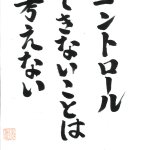 ントロール
きないことは
考えない